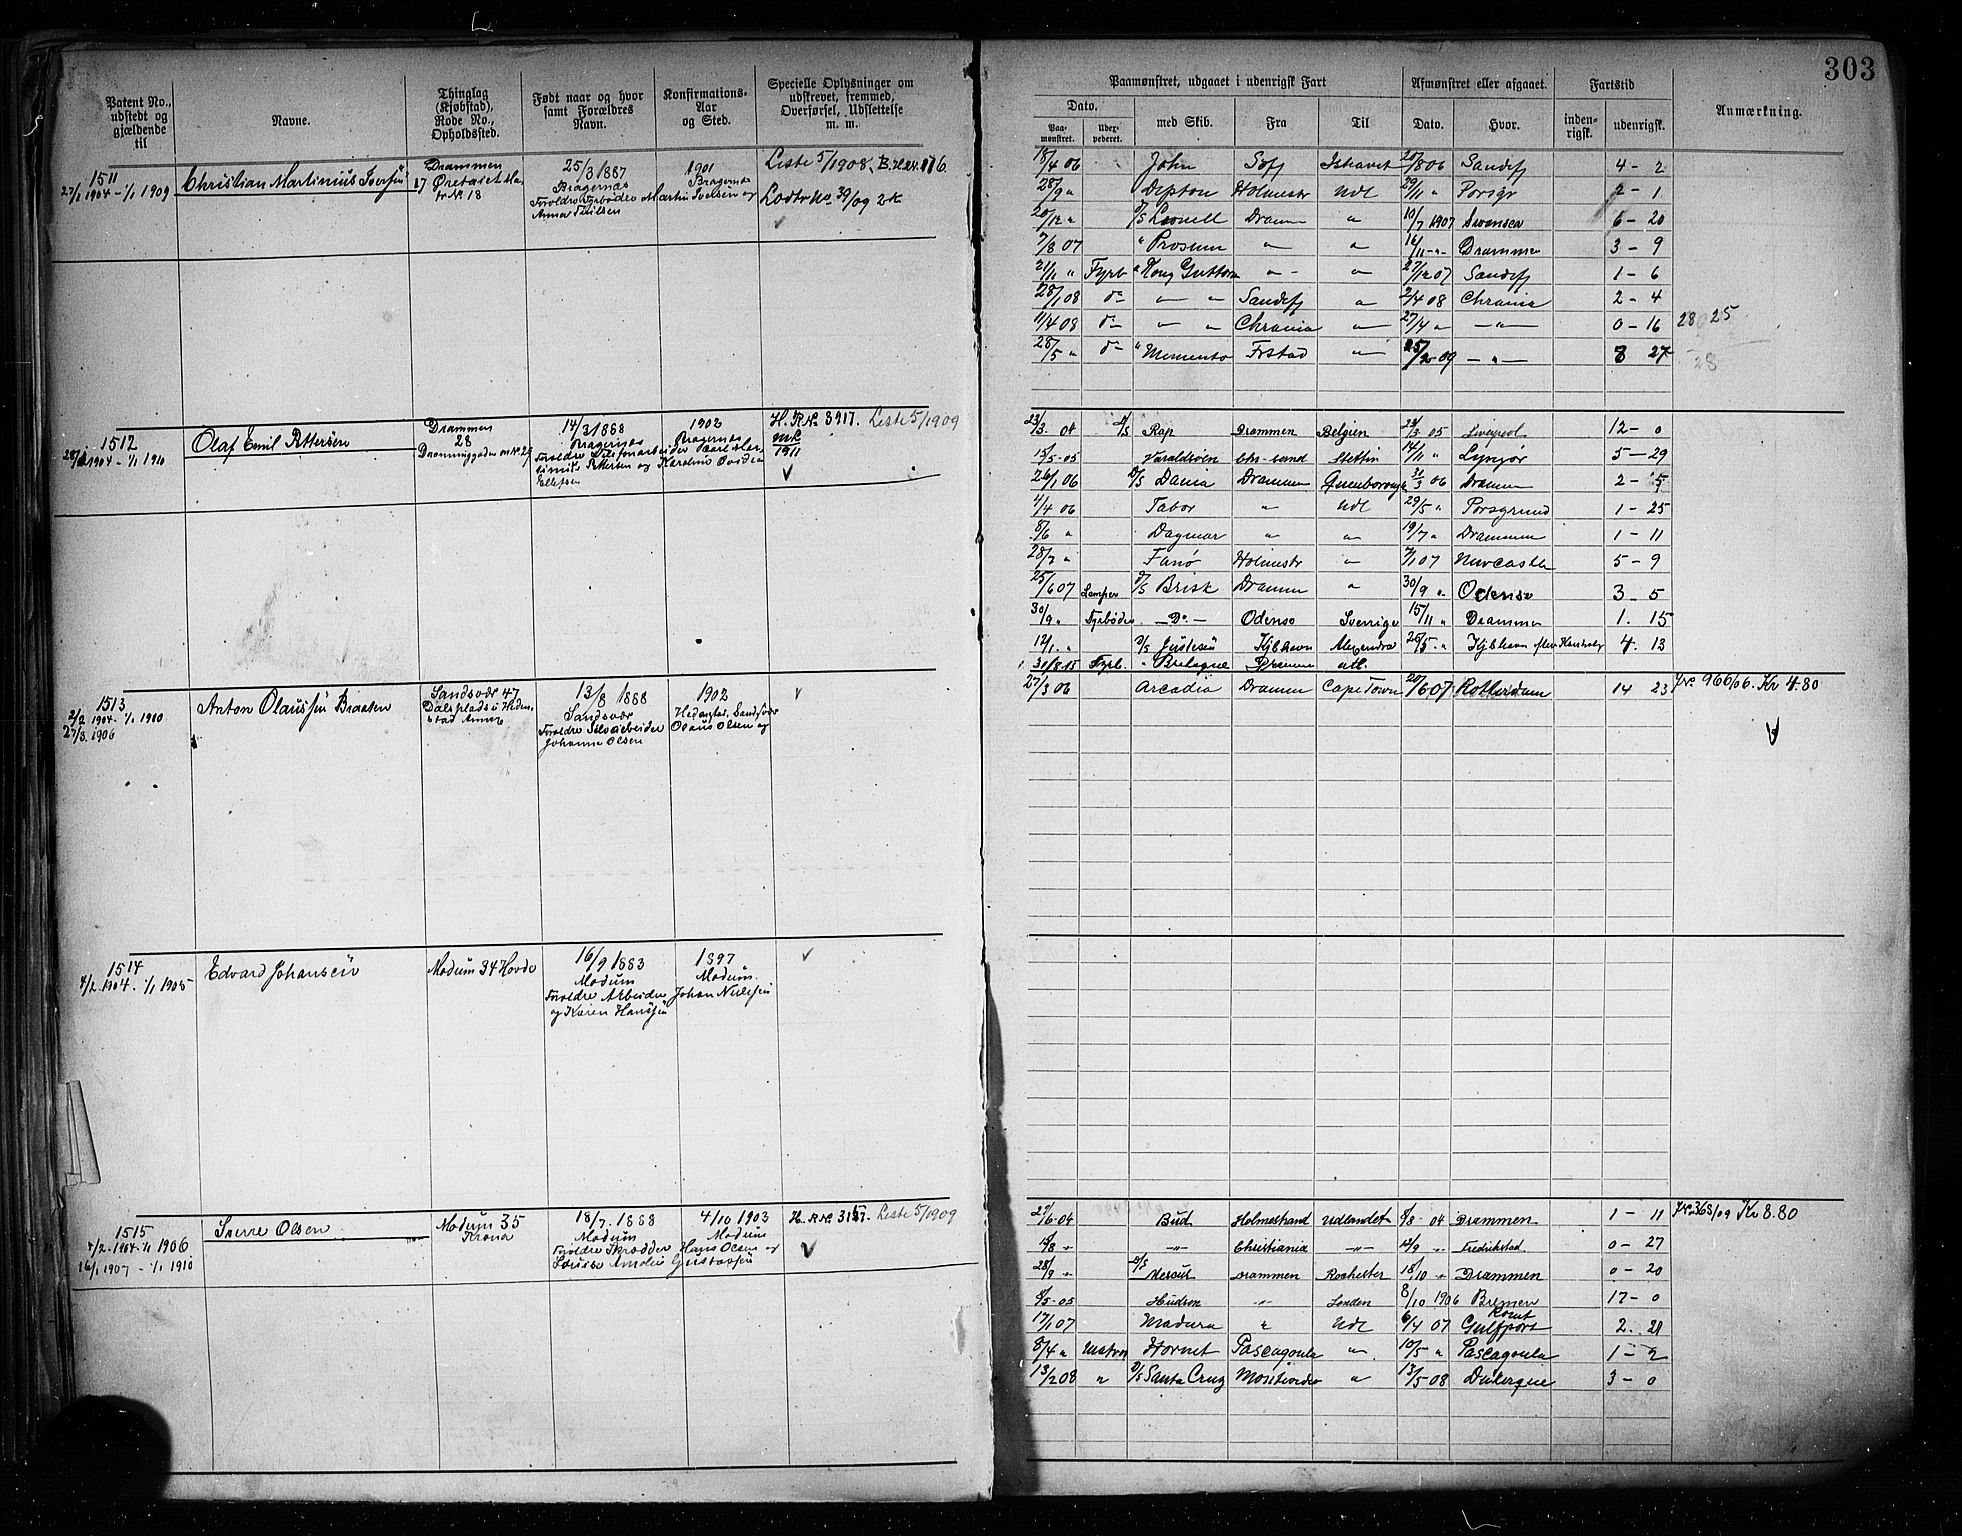 303
Patent No., udstedt og gjældende til
Navne.
Thinglag (Kjøbstad), Rode No., Opholdssted.
Født naar og hvor samt Forældres Navn.
Konfirmations-Aar og Sted.
Specielle Oplysninger om udskrevet, fremmed, Overførsel, Udslettelse m. m.
Paamønstret, udgaaet i udenrigsk Fart
Afmønstret eller afgaaet.
Fartstid
Anmærkning.
Dato.
Paa-mønstret.
med Skib.
Fra
Til
Dato.
Hvor.
inden-rigsk.
udenrigsk.
1511
27/1 1904 - 1/1 1909
Christian Martinius
Drammen
17
No 18
25/3 1887
Bragernæs
1901
Bragernæs
Liste 5/1908
18/4 06 John Søfj Ishavet 20/8 06 Sandefj 4 - 2
28/9 " Holmestr Udl 29/11 " Porsgr 2 - 1
20/12 " D/S Dramn " 10/7 1907 Swansea 6 - 20
7/8 07 " Prosum " " 16/11 - " - Drammen 3 - 9
21/11 " Fyrb " Kong Guttorm " - " 27/12 07 Sandefj 1 - 6
28/1 08 do " " Sandefj " 2/4 08 Chrania 2 - 4
11/4 08 do " " Chrania " 27/4 " - " - 0 - 16
28 25
28/5 " do " Momento Frstad " 09 - " - 8 27
28
1512
1904 - 1/1 1910
Olaf Emil Pettersen
Drammen
28
14/3 1888
Bragernæs
Forældre
Pettersen og Karoline
Ellefsen
1902
Bragernæs
H. R. No 3917. Liste 5/1909
mk
1911
23/3. 04 D/S Rap Drammen Belgien 23/3 05 Liverpool 12 - 0
15/5 - 05 Varaldsøen Chr-sand Stettin 14/11 " Lyngør 5 - 29
26/1 06 D/S Dania Drammen 31/3 06 Dramn 2 - 5
4/4 06 Tabor " Udl 29/5 " Porsgrund 1 - 25
8/6 " Dagmar " " 19/7 " Drammen 1 - 11
28/7 " Fanø Holmestr " 7/1 07 Newcastle 5 - 9
25/6 07 Lemper D/S Brisk Dramn " 30/9 " Odense 3 - 5
30/9 " Fyrbøder - Do - Odense Sverrige 15/11 " Drammen 1. 15
12/1. " D/S Justesen Kjbhavn Alexandra 26/5 - " Kjbhavn 4. 13
30/8.15 Fyrb. " Bretagne Dramn utl.
1513
2/2 1904 - 1/1 1910
27/3. 1906
Anton Olaussen Braaten
Sandsvær 47
Dalsplads i Heden-
stad Annex
13/8 1888
Sandsvær
Forældre Sølvarbeider Olaus Olsen og
Johanne Olsen
1902
Hedenstad, Sandsvær
27/3 06 Arcadia Dramn Cape Town 20/6 07 Rotterdam 14 23
Jr. No 960/06. Kr 4.80
1514
4/2. 1904. - 1/1 1905
Edvard Johansen
Modum 34 Hovde
16/9 1883
Modum
Forældre Arbeider Johan Nielsen
og Karen Hansen
1897
Modum.
1515
4/2 - 1904 - 1/1 1906
16/1 1907 - 1/1 1910
Sverre Olsen
Modum 35
Krona
18/7. 1888
Modum
Forældre Skrædder Hans Olsen og
Louise Amalie Gustavsen
4/10 1903
Modum
H. R No 3137. Liste 5/1909
27/6 - 04 Bud Holmestrand Udlandet 8/8 - 04 Drammen 1 - 11
Jr. No 368/09 Kr 8.80
15/8 " - " - Christiania - " - 12/9 " Fredrikstad. 0 - 27
28/9 " D/S Mercur Drammen Rochester 18/10 " Drammen 0 - 20
8/5 - 05 Hudson - " - London 8/10 1906 Bremen 17 - 0
17/1 07 Madura " Udl 6/4 07 Gulfport 2. 21
8/4 " Matros Hornet Pascagoula " 10/5 " Pascagoula 1 - 2
13/2 08 " D/S Santa Cruz Montevideo " 13/5 - 08 Dukerque 3 - 0